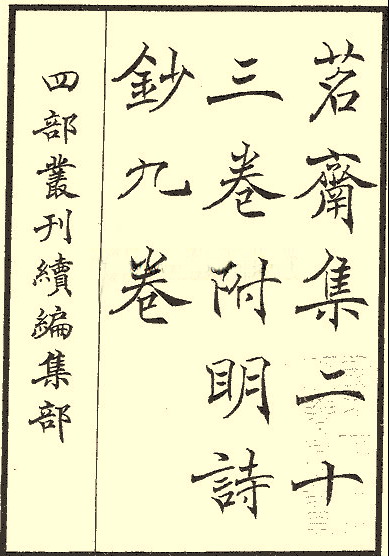 茗齋集二十
三卷附明詩
鈔九卷
四部叢刊續編集部